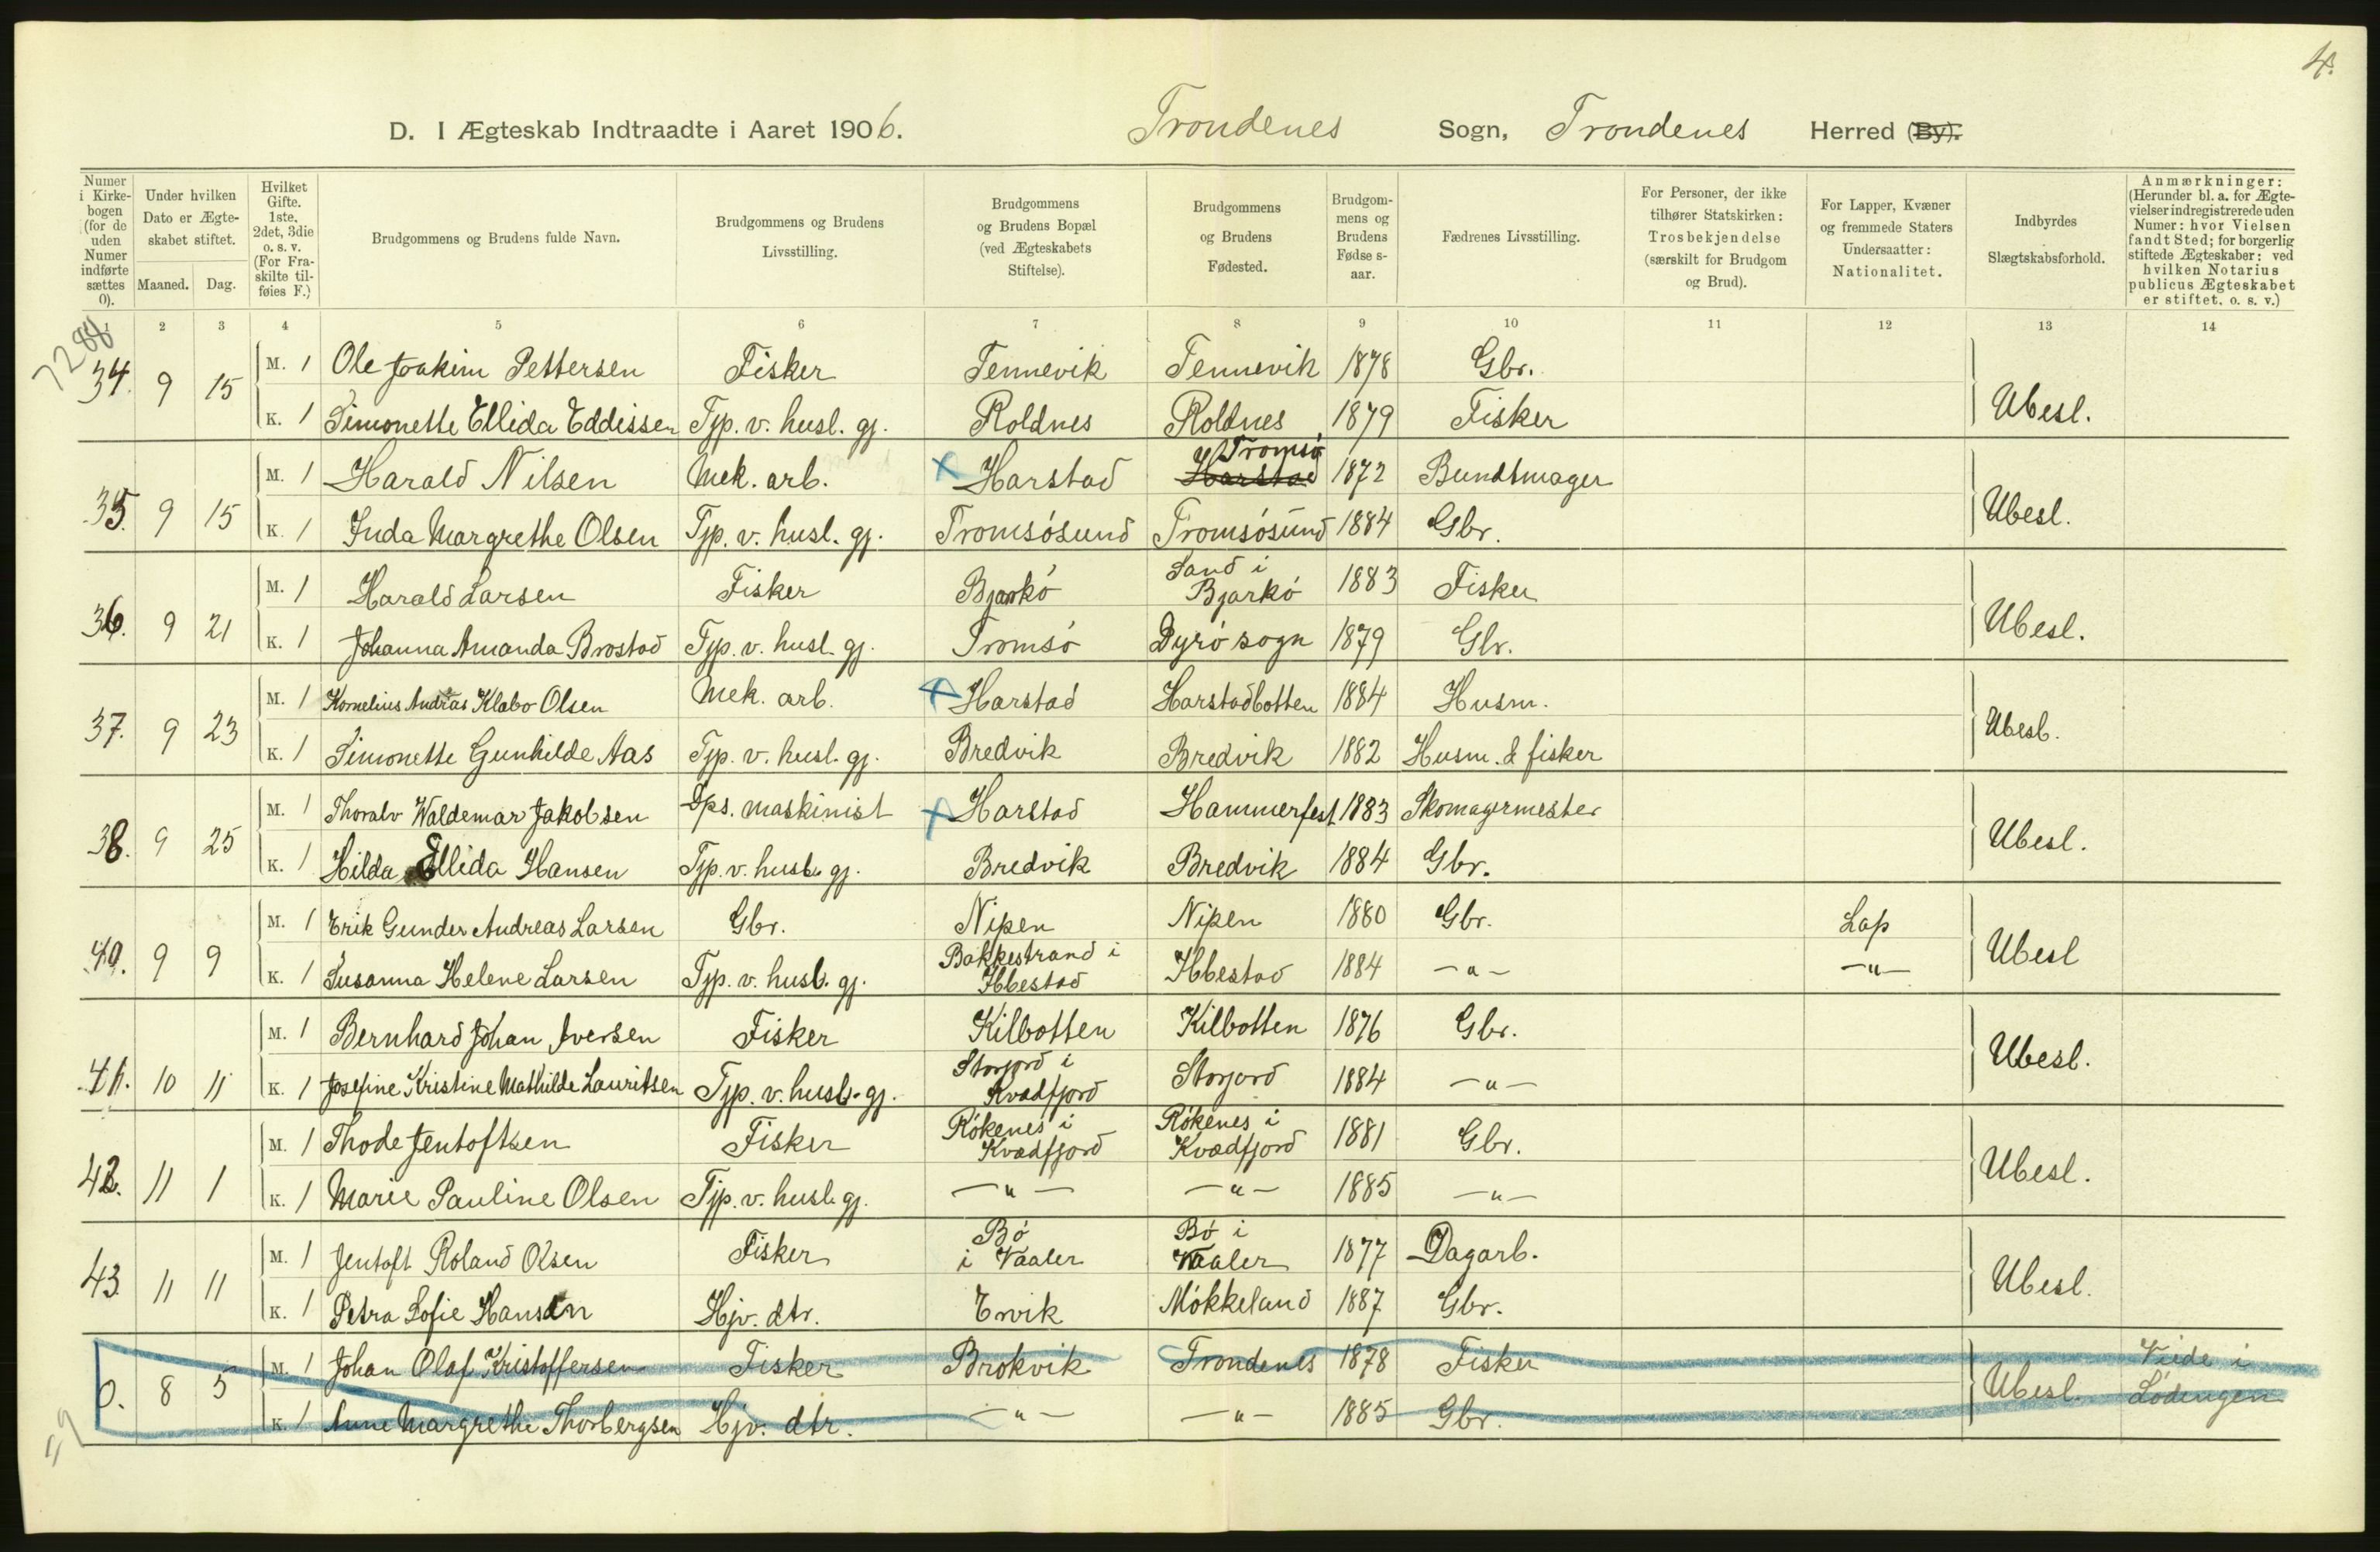 4.
D. I Ægteskab Indtraadte i Aaret 1906. Trondenes Sogn, Trondenes Herred (By).
Numer i Kirkebogen (for de uden Numer indførte sættes 0).
Under hvilken Dato er Ægteskabet stiftet.
Maaned. Dag.
Hvilket Gifte. 1ste, 2det, 3die o. s. v. (For Fraskilte tilføies F.)
Brudgommens og Brudens fulde Navn.
Brudgommens og Brudens Livsstilling.
Brudgommens og Brudens Bopæl (ved Ægteskabets Stiftelse).
Brudgommens og Brudens Fødested.
Brudgommens og Brudens Fødselsaar.
Fædrenes Livsstilling.
For Personer, der ikke tilhører Statskirken: Trosbekjendelse (særskilt for Brudgom og Brud).
For Lapper, Kvæner og fremmede Staters Undersaatter: Nationalitet.
Indbyrdes Slægtskabsforhold.
Anmærkninger: (Herunder bl. a. for Ægtevielser indregistrerede uden Numer: hvor Vielsen fandt Sted; for borgerlig stiftede Ægteskaber: ved hvilken Notarius publicus Ægteskabet er stiftet, o. s. v.)
1 2 3 4 5 6 7 8 9 10 11 12 13 14
34. 9 15 M. 1 Ole Joakim Pettersen Fisker Tennevik Tennevik 1878 Gbr. Ubesl.
K. 1 Simonette Ellida Eddissen Tjp. v. husl. gj. Roldnes Roldnes 1879 Fisker
35. 9 15 M. 1 Harald Nilsen Mek. arb. Harstad Harstad Tromsö 1872 Bundtmager Ubesl.
K. 1 Inda Margrethe Olsen Tjp. v. husl. gj. Tromsösund Tromsösund 1884 Gbr.
36. 9 21 M. 1 Harald Larsen Fisker Bjarkö Sand i Bjarkö 1883 Fisker Ubesl.
K. 1 Johanna Amanda Brostad Tjp. v. husl. gj. Tromsö Dyrö sogn 1879 Gbr.
37. 9 23 M. 1 Kornelius Andras Klabo Olsen Mek. arb. Harstad Harstadbotten 1884 Husm. Ubesl.
K. 1 Simonette Gunhilde Aas Tjp. v. husl. gj. Bredvik Bredvik 1882 Husm. & fisker
38. 9 25 M. 1 Thoralv Waldemar Jakobsen Dps. maskinist Harstad Hammerfest 1883 Skomagermester Ubesl.
K. 1 Hilda Ellida Hansen Tjp. v. husl. gj. Bredvik Bredvik 1884 Gbr.
40. 9 9 M. 1 Erik Gunder Andreas Larsen Gbr. Nipen Nipen 1880 Gbr. Lap Ubesl
K. 1 Susanna Helene Larsen Tjp. v. husl. gj. Bakkestrand i Ibbestad Ibbestad 1884 -"- -"-
41. 10 11 M. 1 Bernhard Johan Iversen Fisker Kilbotten Kilbotten 1876 Gbr. Ubesl.
K. 1 Josefine Kristine Mathilde Lauritsen Tjp. v. husl. gj. Storjord i Kvædfjord Storjord 1884 -"-
42. 11 1 M. 1 Thode Jentoftsen Fisker Rökenes i Kvædfjord Rökenes i Kvædfjord 1881 Gbr. Ubesl.
K. 1 Marie Pauline Olsen Tjp. v. husl. gj. -"- -"- 1885 -"-
43. 11 11 M. 1 Jentoft Roland Olsen Fisker Bö i Vaaler Bö i Vaaler 1877 Dagarb. Ubesl.
K. 1 Petra Sofie Hansen Hjv. dtr. Ervik Mökkeland 1887 Gbr.
0. 8 5 M. 1 Johan Olaf Kristoffersen Fisker Brokvik Trondenes 1878 Fisker Ubesl. Viede i Lödingen
K. 1 Anne Margrethe Thorbergsen Hjv. dtr. -"- -"- 1885 Gbr.